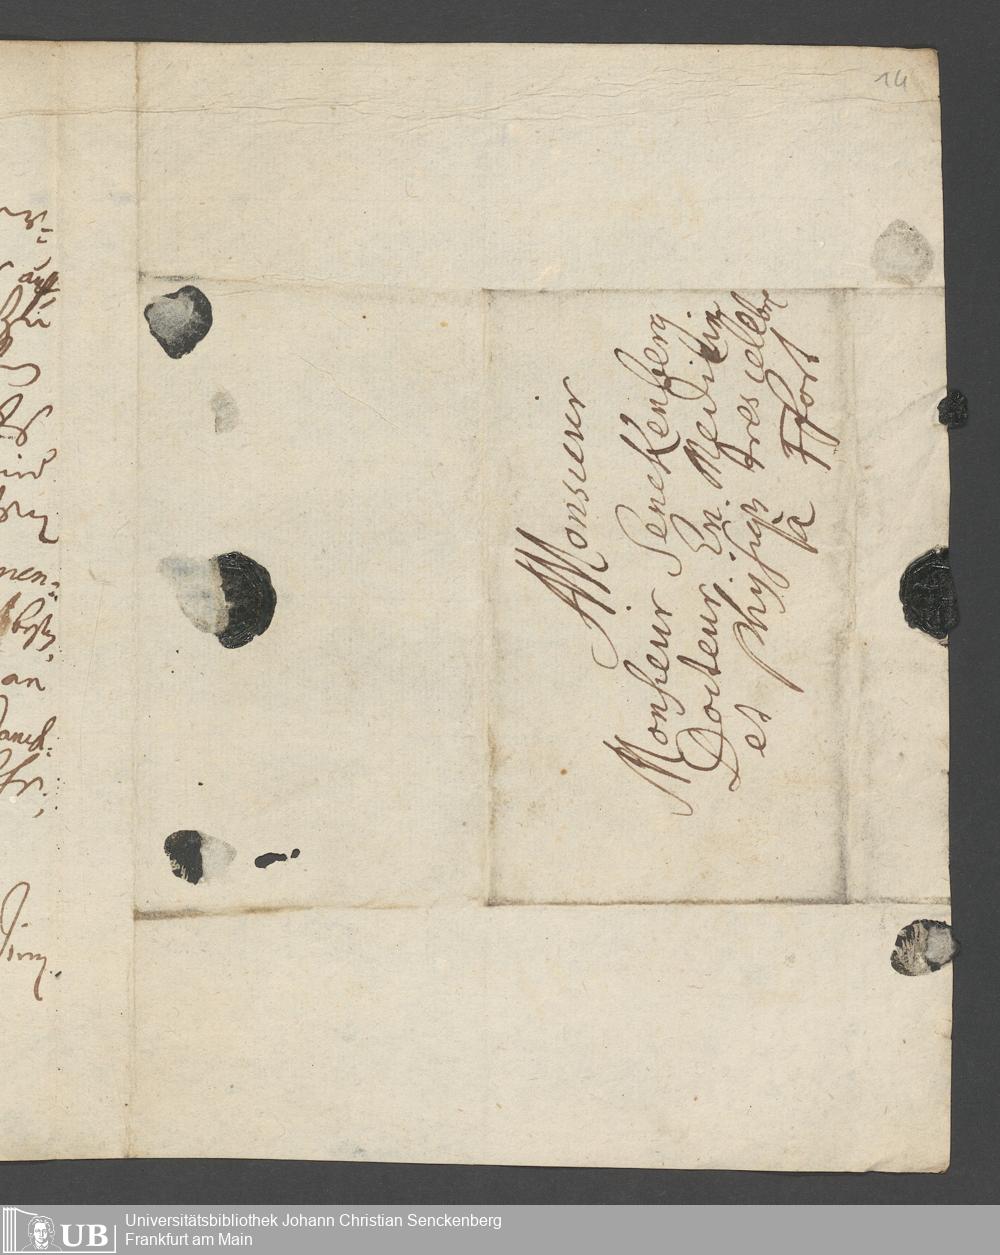 14
A Monsieur
Monsieur Senckenberg
Docteur En. Medicin
et Physiq; tres celebre
à Ffort
auff
zu
und
nen-
an
UB
Universitätsbibliothek Johann Christian Senckenberg
Frankfurt am Main